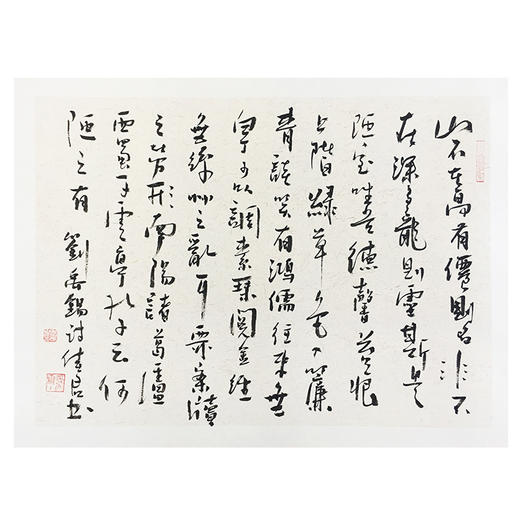 山不在高有僊則名水不
在深有龍則靈斯是
陋室唯吾德馨苔痕
上階綠草色入簾
青談笑有鴻儒往來無
白丁可以調素琴閱金經
無絲竹之亂耳無案牘
之勞形南陽諸葛廬
西蜀子雲亭孔子云何
陋之有 劉禹錫詩 书